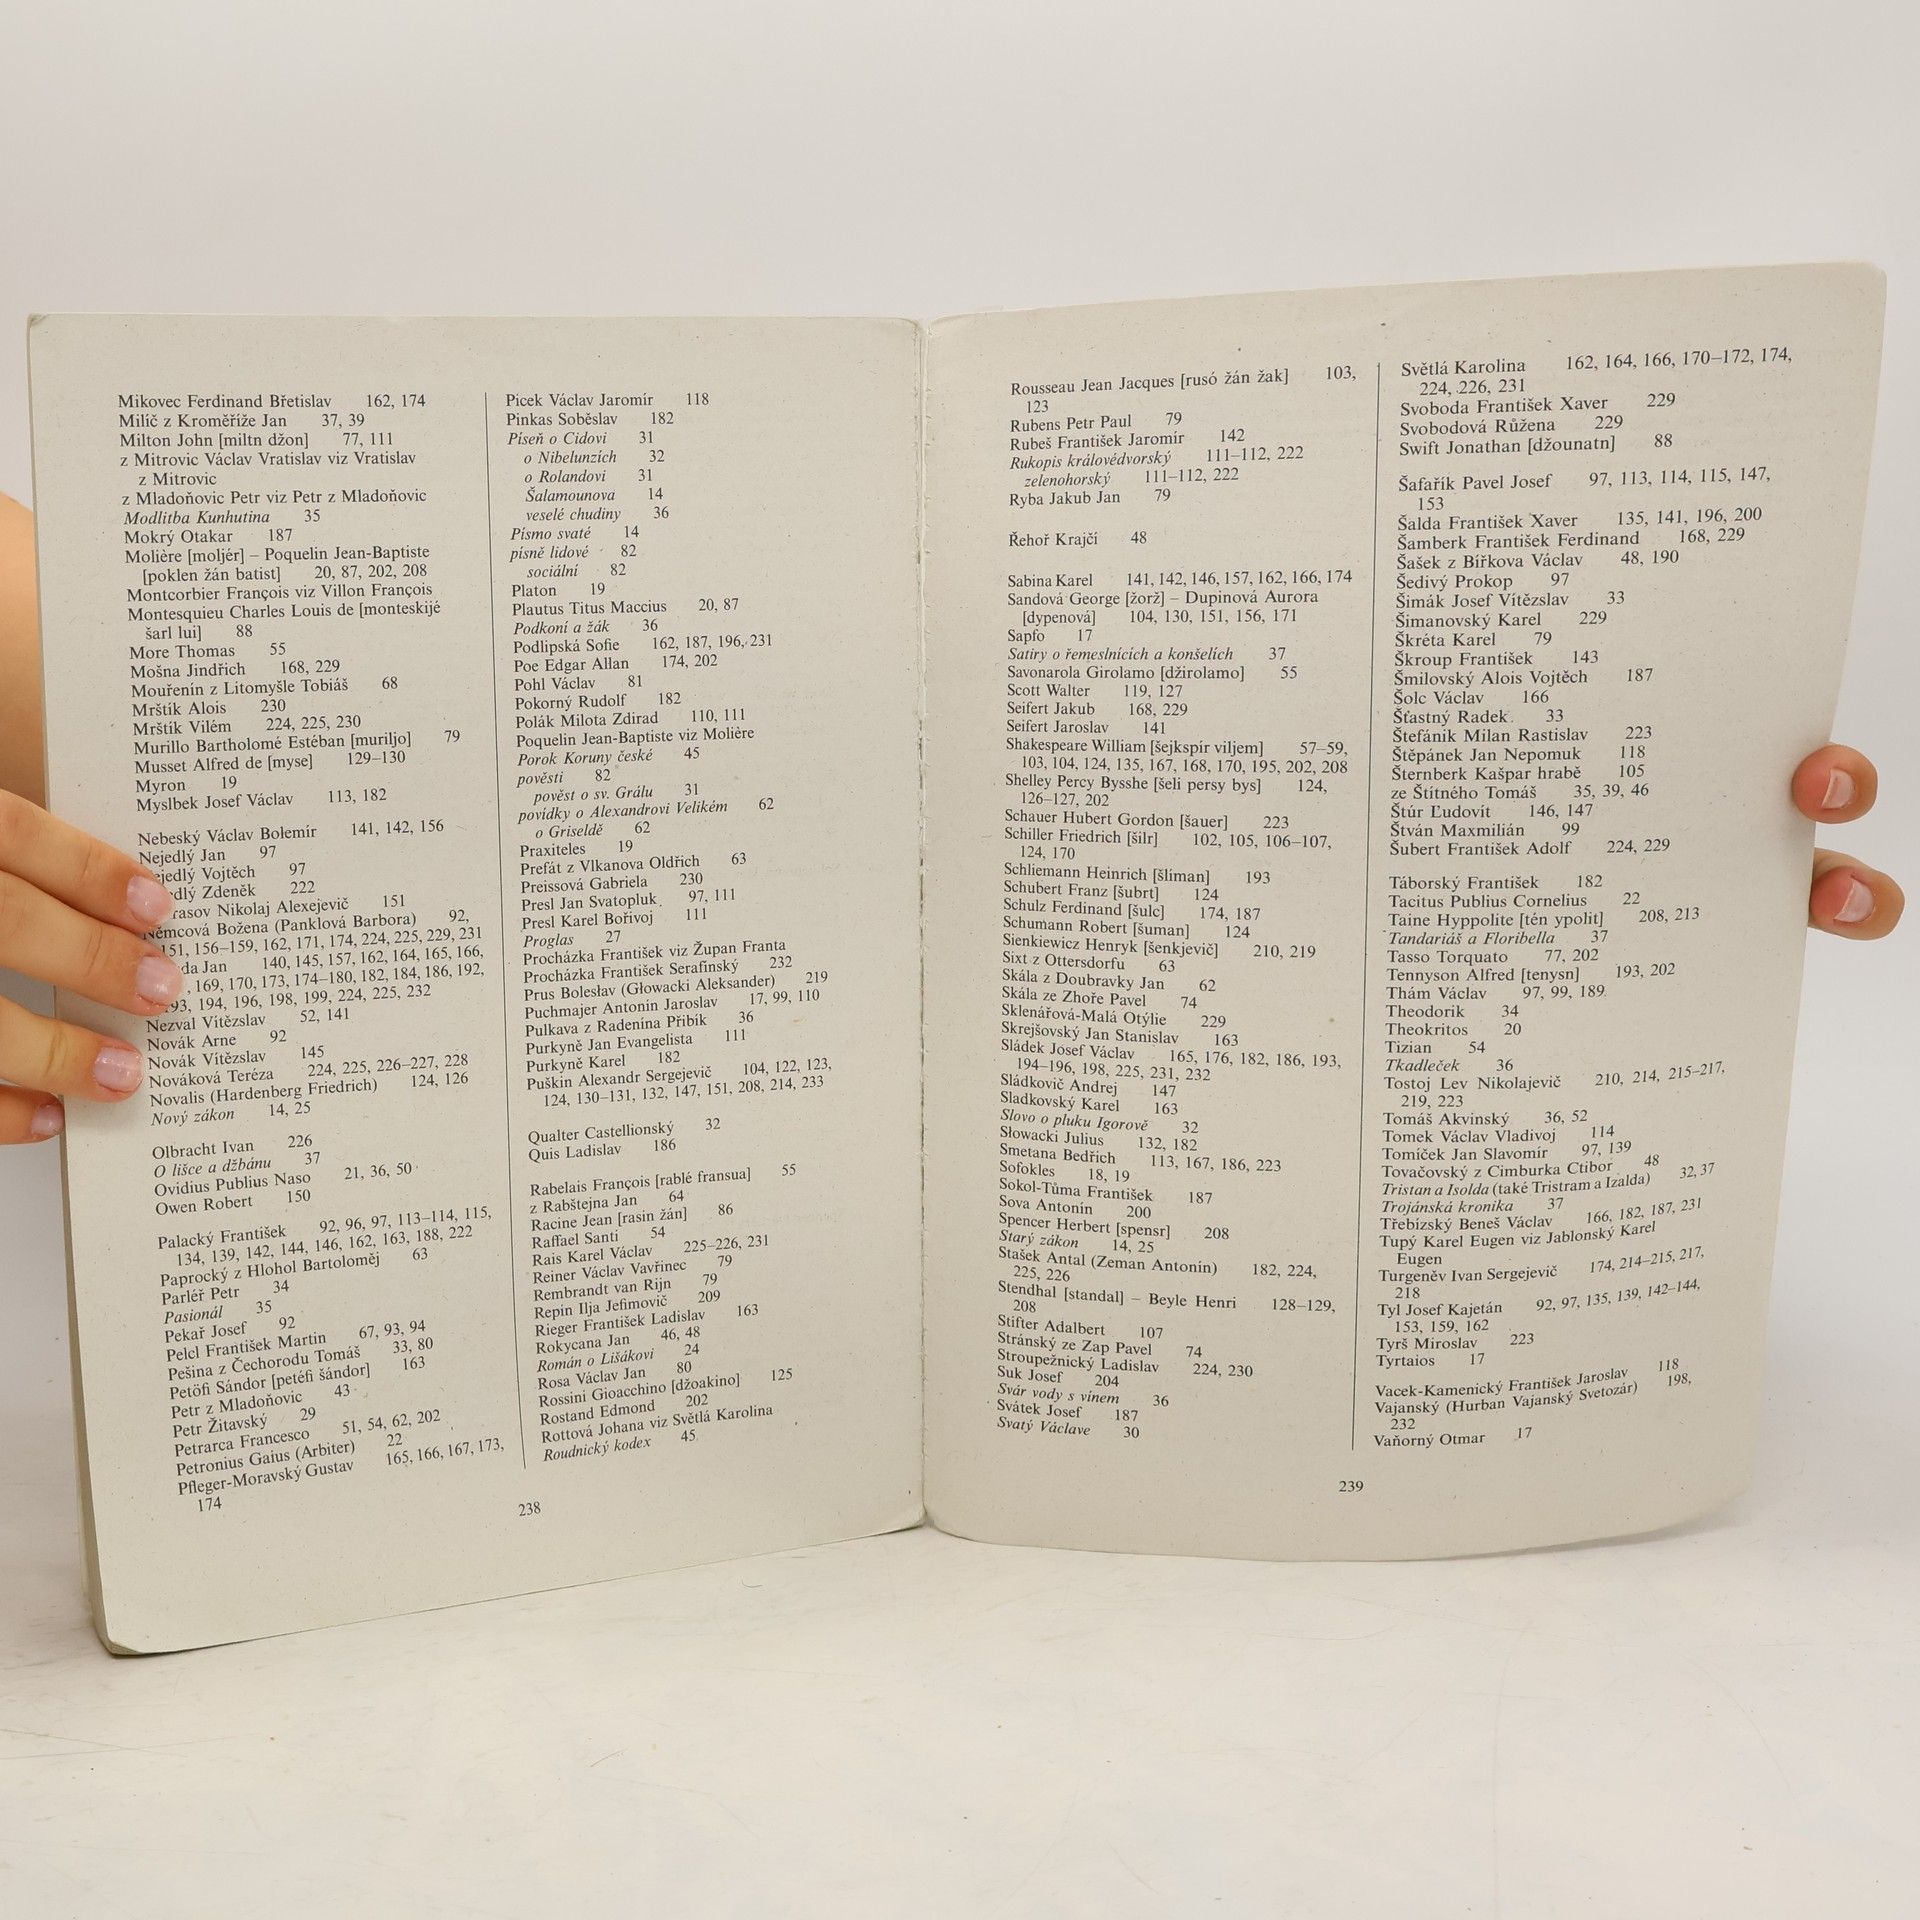 Mikovec Ferdinand Břetislav 162, 174
Milíč z Kroměříže Jan 37, 39
Milton John [miltn džon] 77, 111
z Mitrovic Václav Vratislav viz Vratislav
z Mitrovic
z Mladoňovic Petr viz Petr z Mladoňovic
Modlitba Kunhutina 35
Mokrý Otakar 187
Molière [moljér] – Poquelin Jean-Baptiste
[poklen žán batist] 20, 87, 202, 208
Montcorbier François viz Villon François
Montesquieu Charles Louis de [monteskijé
šarl lui] 88
More Thomas 55
Mošna Jindřich 168, 229
Mouřenín z Litomyšle Tobiáš 68
Mrštík Alois 230
Mrštík Vilém 224, 225, 230
Murillo Bartholomé Estéban [muriljo] 79
Musset Alfred de [myse] 129–130
Myron 19
Myslbek Josef Václav 113, 182
Nebeský Václav Bolemír 141, 142, 156
Nejedlý Jan 97
ejedlý Vojtěch 97
edlý Zdeněk 222
rasov Nikolaj Alexejevič 151
Němcová Božena (Panklová Barbora) 92,
151, 156–159, 162, 171, 174, 224, 225, 229, 231
da Jan 140, 145, 157, 162, 164, 165, 166,
, 169, 170, 173, 174–180, 182, 184, 186, 192,
93, 194, 196, 198, 199, 224, 225, 232
Nezval Vítězslav 52, 141
Novák Arne 92
Novák Vítězslav 145
Nováková Teréza 224, 225, 226–227, 228
Novalis (Hardenberg Friedrich) 124, 126
Nový zákon 14, 25
Olbracht Ivan 226
O lišce a džbánu 37
Ovidius Publius Naso 21, 36, 50
Owen Robert 150
Palacký František 92, 96, 97, 113–114, 115,
134, 139, 142, 144, 146, 162, 163, 188, 222
Paprocký z Hlohol Bartoloměj 63
Parléř Petr 34
Pasionál 35
Pekař Josef 92
Pelcl František Martin 67, 93, 94
Pešina z Čechorodu Tomáš 33, 80
Petöfi Sándor [petéfi šándor] 163
Petr z Mladoňovic 43
Petr Žitavský 29
Petrarca Francesco 51, 54, 62, 202
Petronius Gaius (Arbiter) 22
Pfleger-Moravský Gustav 165, 166, 167, 173,
174
Picek Václav Jaromír 118
Pinkas Soběslav 182
Píseň o Cidovi 31
o Nibelunzích 32
o Rolandovi 31
Šalamounova 14
veselé chudiny 36
Písmo svaté 14
písně lidové 82
sociální 82
Platon 19
Plautus Titus Maccius 20, 87
Podkoní a žák 36
Podlipská Sofie 162, 187, 196, 231
Poe Edgar Allan 174, 202
Pohl Václav 81
Pokorný Rudolf 182
Polák Milota Zdirad 110, 111
Poquelin Jean-Baptiste viz Molière
Porok Koruny české 45
pověsti 82
pověst o sv. Grálu 31
povídky o Alexandrovi Velikém 62
o Griseldě 62
Praxiteles 19
Prefát z Vlkanova Oldřich 63
Preissová Gabriela 230
Presl Jan Svatopluk 97, 111
Presl Karel Bořivoj 111
Proglas 27
Procházka František viz Župan Franta
Procházka František Serafínský 232
Prus Bolesław (Głowacki Aleksander) 219
Puchmajer Antonín Jaroslav 17, 99, 110
Pulkava z Radenína Přibík 36
Purkyně Jan Evangelista 111
Purkyně Karel 182
Puškin Alexandr Sergejevič 104, 122, 123,
124, 130–131, 132, 147, 151, 208, 214, 233
Qualter Castellionský 32
Quis Ladislav 186
Rabelais François [rablé fransua] 55
z Rabštejna Jan 64
Racine Jean [rasin žán] 86
Raffael Santi 54
Rais Karel Václav 225–226, 231
Reiner Václav Vavřinec 79
Rembrandt van Rijn 79
Repin Ilja Jefimovič 209
Rieger František Ladislav 163
Rokycana Jan 46, 48
Román o Lišákovi 24
Rosa Václav Jan 80
Rossini Gioacchino [džoakino] 125
Rostand Edmond 202
Rottová Johana viz Světlá Karolína
Roudnický kodex 45
238
Rousseau Jean Jacques [rusó žán žak] 103,
123
Rubens Petr Paul 79
Rubeš František Jaromír 142
Rukopis královédvorský 111–112, 222
zelenohorský 111–112, 222
Ryba Jakub Jan 79
Řehoř Krajčí 48
Sabina Karel 141, 142, 146, 157, 162, 166, 174
Sandová George [žorž] – Dupinová Aurora
[dypenová] 104, 130, 151, 156, 171
Sapfo 17
Satiry o řemeslnících a konšelích 37
Savonarola Girolamo [džirolamo] 55
Scott Walter 119, 127
Seifert Jakub 168, 229
Seifert Jaroslav 141
Shakespeare William [šejkspír viljem] 57–59,
103, 104, 124, 135, 167, 168, 170, 195, 202, 208
Shelley Percy Bysshe [šeli persy bys] 124,
126–127, 202
Schauer Hubert Gordon [šauer] 223
Schiller Friedrich [šilr] 102, 105, 106–107,
124, 170
Schliemann Heinrich [šlíman] 193
Schubert Franz [šubrt] 124
Schulz Ferdinand [šulc] 174, 187
Schumann Robert [šuman] 124
Sienkiewicz Henryk [šenkjevič] 210, 219
Sixt z Ottersdorfu 63
Skála z Doubravky Jan 62
Skála ze Zhoře Pavel 74
Sklenářová-Malá Otýlie 229
Skrejšovský Jan Stanislav 163
Sládek Josef Václav 165, 176, 182, 186, 193,
194–196, 198, 225, 231, 232
Sládkovič Andrej 147
Sladkovský Karel 163
Slovo o pluku Igorově 32
Słowacki Julius 132, 182
Smetana Bedřich 113, 167, 186, 223
Sofokles 18, 19
Sokol-Tůma František 187
Sova Antonín 200
Spencer Herbert [spensr] 208
Starý zákon 14, 25
Stašek Antal (Zeman Antonín) 182, 224,
225, 226
Stendhal [standal] – Beyle Henri 128–129,
208
Stifter Adalbert 107
Stránský ze Zap Pavel 74
Stroupežnický Ladislav 224, 230
Suk Josef 204
Svár vody s vínem 36
Svátek Josef 187
Svatý Václave 30
Světlá Karolina 162, 164, 166, 170–172, 174,
224, 226, 231
Svoboda František Xaver 229
Svobodová Růžena 229
Swift Jonathan [džounatn] 88
Šafařík Pavel Josef 97, 113, 114, 115, 147,
153
Šalda František Xaver 135, 141, 196, 200
Šamberk František Ferdinand 168, 229
Šašek z Bířkova Václav 48, 190
Šedivý Prokop 97
Šimák Josef Vítězslav 33
Šimanovský Karel 229
Škréta Karel 79
Škroup František 143
Šmilovský Alois Vojtěch 187
Šolc Václav 166
Šťastný Radek 33
Štefánik Milan Rastislav 223
Štěpánek Jan Nepomuk 118
Šternberk Kašpar hrabě 105
ze Štítného Tomáš 35, 39, 46
Štúr Ľudovít 146, 147
Štván Maxmilián 99
Šubert František Adolf 224, 229
Táborský František 182
Tacitus Publius Cornelius 22
Taine Hyppolite [tén ypolit] 208, 213
Tandariáš a Floribella 37
Tasso Torquato 77, 202
Tennyson Alfred [tenysn] 193, 202
Thám Václav 97, 99, 189
Theodorik 34
Theokritos 20
Tizian 54
Tkadleček 36
Tostoj Lev Nikolajevič 210, 214, 215–217,
219, 223
Tomáš Akvinský 36, 52
Tomek Václav Vladivoj 114
Tomíček Jan Slavomír 97, 139
Tovačovský z Cimburka Ctibor 48
Tristan a Isolda (také Tristram a Izalda) 32, 37
Trojánská kronika 37
Třebízský Beneš Václav 166, 182, 187, 231
Tupý Karel Eugen viz Jablonský Karel
Eugen
Turgeněv Ivan Sergejevič 174, 214–215, 217,
218
Tyl Josef Kajetán 92, 97, 135, 139, 142–144,
153, 159, 162
Tyrš Miroslav 223
Tyrtaios 17
Vacek-Kamenický František Jaroslav 118
Vajanský (Hurban Vajanský Svetozár) 198,
232
Vaňorný Otmar 17
239